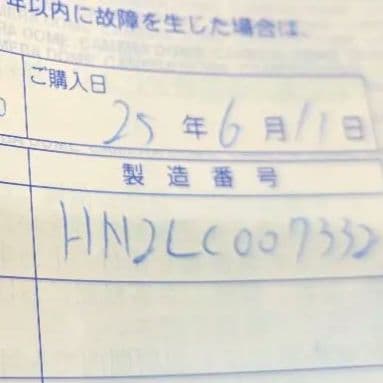 年以内に故障を生じた場合は、
ご購入日
25 年 6 月 11 日
製造番号
HN2LC007332